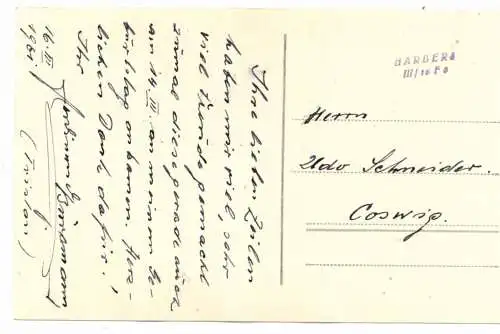 Ihre lieben Zeilen
haben mir viel, sehr
viel Freude gemacht
zumal diese gerade auch
am 14. III. an meinem Ge-
burtstag ankamen. Herz-
lichen Dank dafür!
Ihr
16. III.
1961
BARBERA
III/18
Herrn
Udo Schneider.
Coswig.